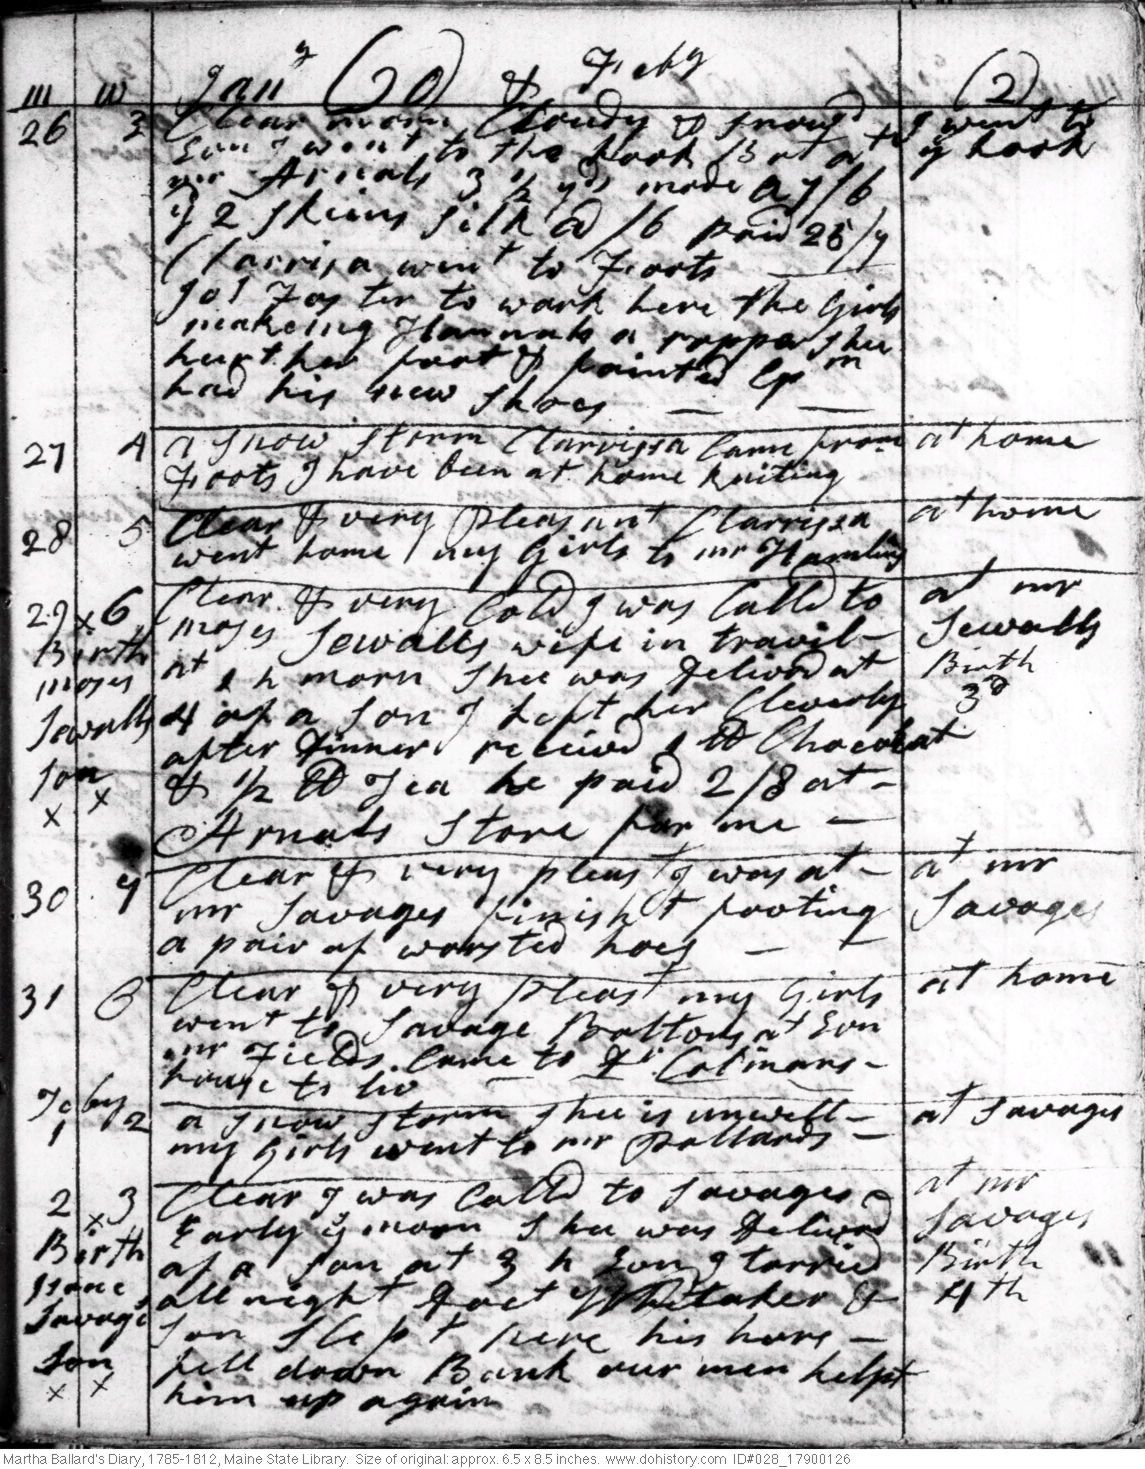 m w Jan^y (20) & Feby (2)
26 3 Clear morn Cloudy & snowd I went to
Eon I went to the hook Bot at y hook
mr Arnals 3 1/2 yds mode @ 7/6
& 2 skeins silk @ /6 paid 28/
Clarrisa went to Foots
Jos Foster to work here the Girls
makeing Hannah a rapper shee
hurt her foot & fainted Ep^m
had his new shoes
27 4 a snow storm Clarrissa Came from at home
Foots I have been at home kniting
28 5 Clear & very pleasant Clarrissa at home
went home my Girls to mr Hamlins
29 x 6 Clear & very Cold I was Calld to at mr
Birth moses Sewalls wife in travil Sewalls
moses at 1 h morn shee was delivrd at Birth
Sewalls 4 of a son I left her Cleverly 3^d
after dinner receivd 1 lb Chocolat
son & 1/2 lb Tea he paid 2/8 at
x x Arnals store for me
30 7 Clear & very pleast I was at at mr
mr Savages finisht footing Savages
a pair of worsted hoes
31 C Clear & very pleast my Girls at home
went to Savage Boltons at Eon
mr Fields Came to Dr Colmans
house to liv
Feby
1 2 a snow storm shee is unwell at Savages
my Girls went to mr pollards
2 x 3 Clear I was Calld to Savages at mr
Early y morn shee was delivrd Savages
Birth of a son at 3 h Eon I tarried Birth
Isaac all night doct Whitaker & 4th
Savage son slept here his hors
son fell down Bank our men helpt
x x him up again
Martha Ballard's Diary, 1785-1812, Maine State Library. Size of original: approx. 6.5 x 8.5 inches. www.dohistory.com ID#028_17900126